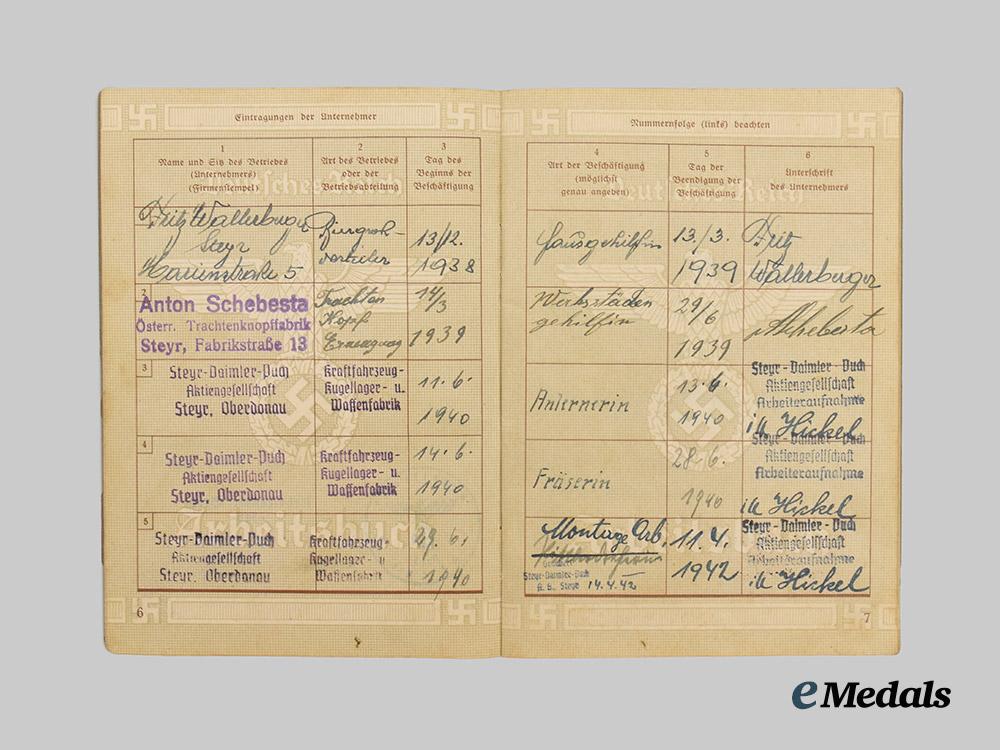 Eintragungen der Unternehmer
1
Name und Sitz des Betriebes
(Unternehmers)
(Firmenstempel)
2
Art des Betriebes
oder der
Betriebsabteilung
3
Tag des
Beginns der
Beschäftigung
Fritz Wallerburger
Steyr
5
13/12.
1938
2
Anton Schebesta
Österr. Trachtenknopffabrik
Steyr, Fabrikstraße 13
Trachten
Knopf
Erzeugung
14/3
1939
3
Steyr-Daimler-Puch
Aktiengesellschaft
Steyr, Oberdonau
Kraftfahrzeug-
Kugellager- u.
Waffenfabrik
11.6.
1940
4
Steyr-Daimler-Puch
Aktiengesellschaft
Steyr, Oberdonau
Kraftfahrzeug-
Kugellager- u.
Waffenfabrik
14.6.
1940
5
Steyr-Daimler-Puch
Aktiengesellschaft
Steyr, Oberdonau
Kraftfahrzeug-
Kugellager- u.
Waffenfabrik
29.6.
1940
Deutsches Reich
Arbeitsbuch
6
Nummernfolge (links) beachten
4
Art der Beschäftigung
(möglichst
genau angeben)
5
Tag der
Beendigung der
Beschäftigung
6
Unterschrift
des Unternehmers
Hausgehilfin
13./3.
1939
Fritz
Wallerburger
gehilfin
29/6
1939
ASchebesta
Anlernerin
13.6.
1940
Steyr-Daimler-Puch
Aktiengesellschaft
Arbeiteraufnahme
Hickel
Fräserin
28.6.
1940
Steyr-Daimler-Puch
Aktiengesellschaft
Arbeiteraufnahme
Hickel
Montage Arb.
Steyr-Daimler-Puch
A. G. Steyr 14.4.42
11.4.
1942
Steyr-Daimler-Puch
Aktiengesellschaft
Arbeiteraufnahme
Hickel
Deutsches Reich
7
eMedals